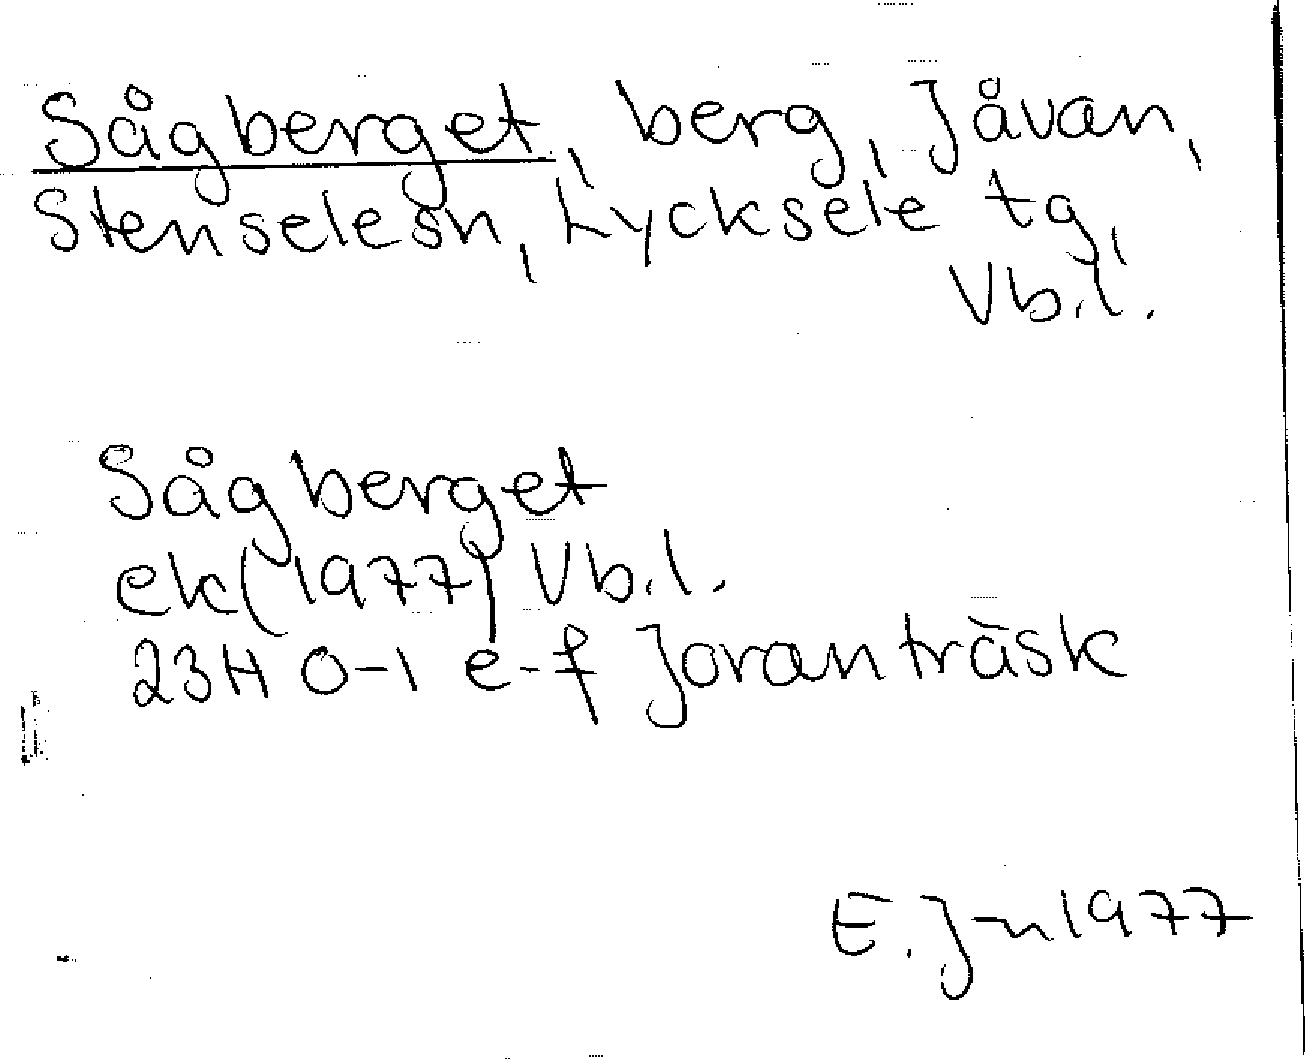 Sågberget, berg, Jåvan,
Stensele sn, Lycksele tg,
Vb.l.
Sågberget
ek (1977) Vb.l.
23H 0-1 e-f Joranträsk
E. J-n 1977